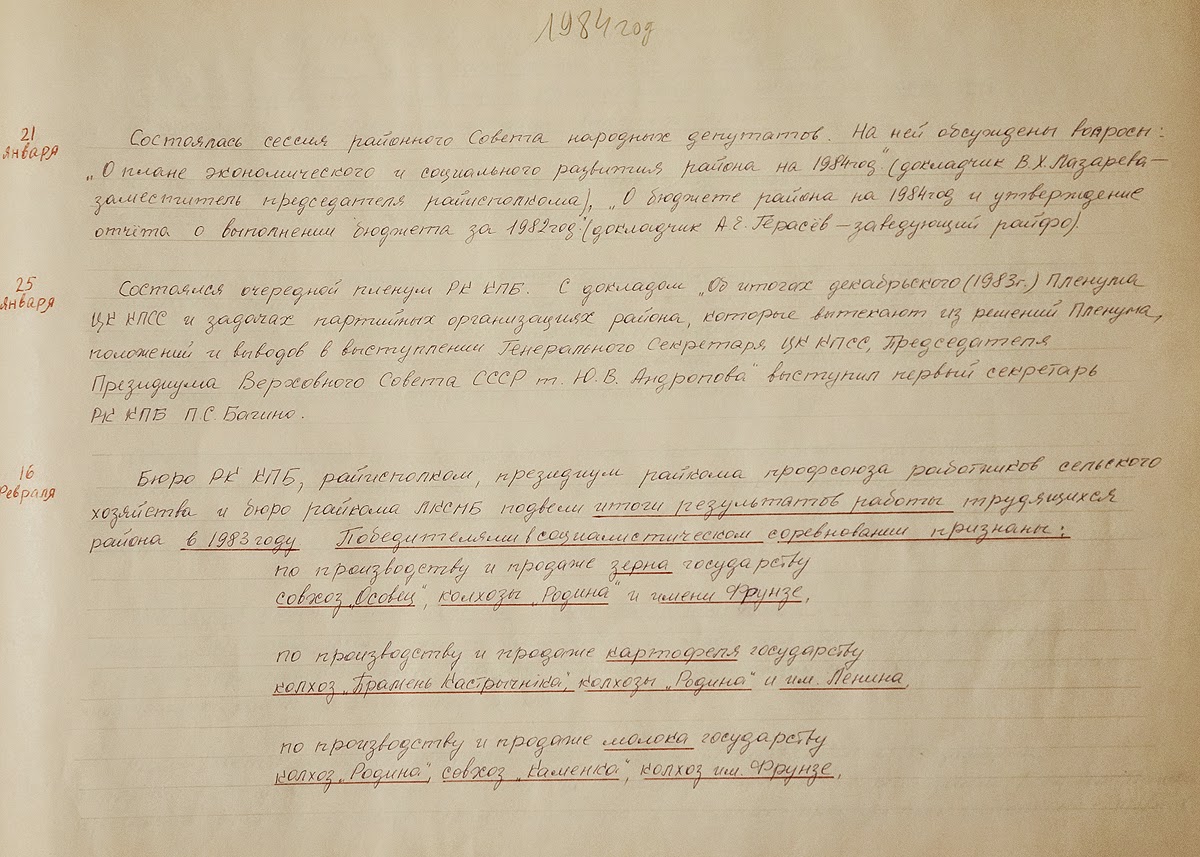 1984 год
21 января
Состоялась сессия районного Совета народных депутатов. На ней обсуждены вопросы:
„О плане экономического и социального развития района на 1984год" (докладчик В.Х.Лазарева—
заместитель председателя райисполкома), „О бюджете района на 1984год и утверждение
отчёта о выполнении бюджета за 1982год" (докладчик А.Е.Герасёв—заведующий райфо).
25 января
Состоялся очередной пленум РК КПБ. С докладом „Об итогах декабрьского (1983г.) Пленума
ЦК КПСС и задачах партийных организациях района, которые вытекают из решений Пленума,
положений и выводов в выступлении Генерального Секретаря ЦК КПСС, Председателя
Президиума Верховного Совета СССР т. Ю.В. Андропова" выступил первый секретарь
РК КПБ П.С.Багино.
16 февраля
Бюро РК КПБ, райисполком, президиум райкома профсоюза работников сельского
хозяйства и бюро райкома ЛКСМБ подвели итоги результатов работы трудящихся
района в 1983 году. Победителями в социалистическом соревновании признаны:
по производству и продаже зерна государству
совхоз „Осовец", колхозы „Родина" и имени Фрунзе,
по производству и продаже картофеля государству
колхоз „Прамень Кастрычніка", колхозы „Родина" и им. Ленина,
по производству и продаже молока государству
колхоз „Родина", совхоз „Каменка", колхоз им. Фрунзе,